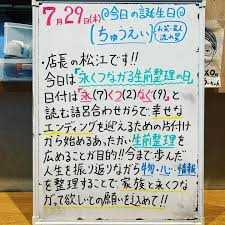 7月29日(木) @今日の誕生日@
(ちゅうえい)お笑い芸人 流れ星
・店長の松江です!!
今日は「永くつながる生前整理の日」
日付は「永(7)くつ(2)なぐ(9)」と
読む語呂合わせからで幸せな
エンディングを迎えるための片付け
から始めるあったかい生前整理を
広めることが目的!!今まで歩んだ
人生を振り返りながら物・心・情報
を整理することで家族と永くつな
がって欲しいとの願いを込めて!!